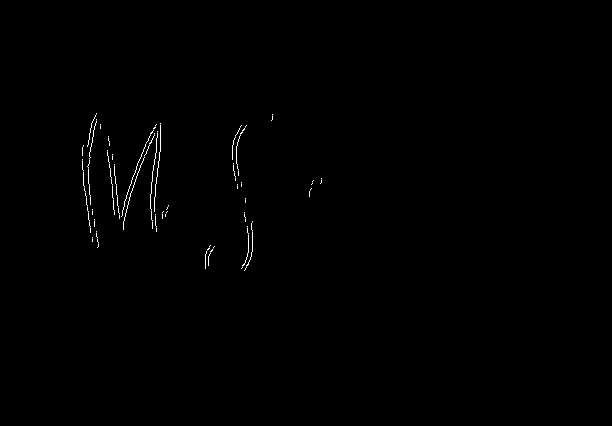 M. S.